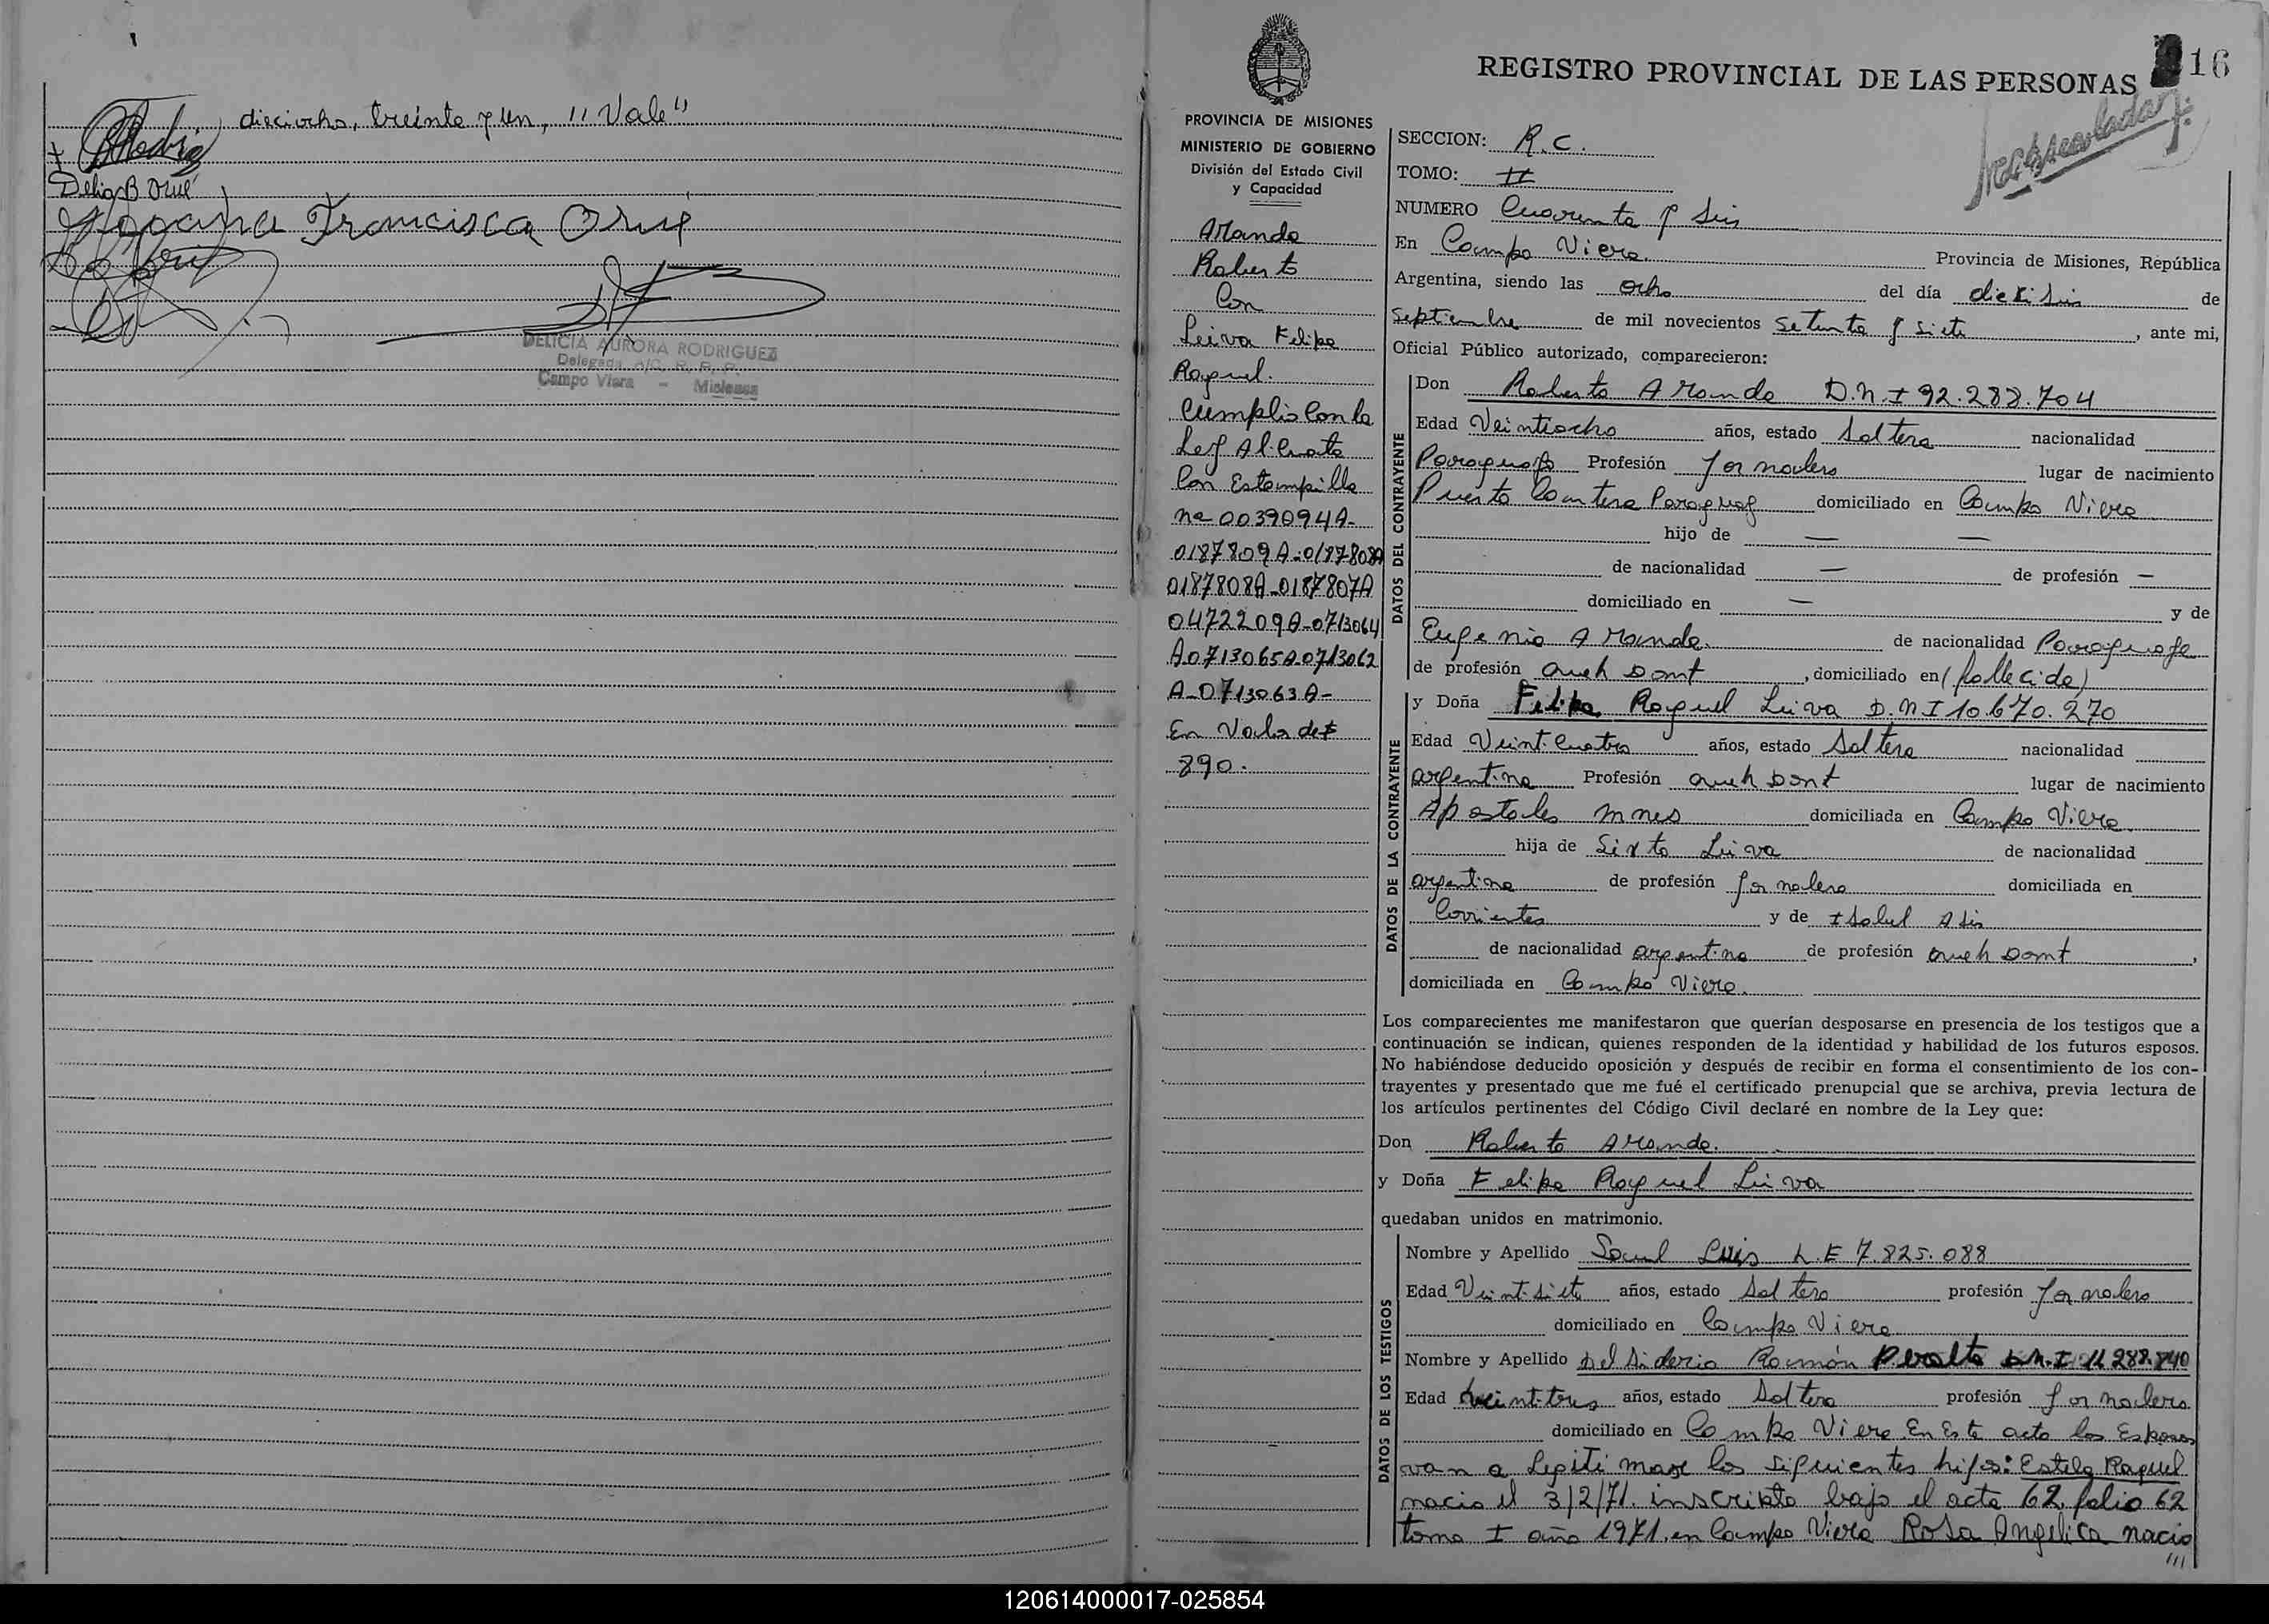 dieciocho, treinta y un, "Vale"
Delia B Orué
Francisca Orué
DELICIA AURORA RODRIGUEZ
Delegada A/C. R. P. P.
Campo Viera - Misiones
REGISTRO PROVINCIAL DE LAS PERSONAS
16
PROVINCIA DE MISIONES
MINISTERIO DE GOBIERNO
División del Estado Civil
y Capacidad
Aranda
Roberto
Con
Leiva Felipa
Raquel.
Cumplio Con la
Ley Al. Cuota
Con Estampilla
na 0039094A-
0187809A-0187808A
0187808A-0187807A
0472209A-0713064
A0713065A-0713062
A-0713063A-
En Valor de $
890.
SECCION: R.C.
TOMO: II
NUMERO Cuarenta y Seis
En Campo Viera. Provincia de Misiones, República
Argentina, siendo las ocho del día dieciseis de
Septiembre de mil novecientos Setenta y Siete, ante mi,
Oficial Público autorizado, comparecieron:
DATOS DEL CONTRAYENTE
Don Roberto Aranda D.N.I 92.288.704
Edad Veintiocho años, estado Soltero nacionalidad
Paraguayo Profesión Jornalero lugar de nacimiento
Puerto Cantera Paraguay domiciliado en Campo Viera
hijo de — —
de nacionalidad — de profesión —
domiciliado en — y de
Eugenia Aranda. de nacionalidad Paraguaya
de profesión Queh Domt, domiciliado en (fallecida)
DATOS DE LA CONTRAYENTE
y Doña Felipa Raquel Leiva D.N I 10.670.270
Edad Veinticuatro años, estado Soltera nacionalidad
argentina Profesión Queh Domt lugar de nacimiento
Apostoles Mnes domiciliada en Campo Viera
hija de Sixto Leiva de nacionalidad
argentina de profesión Jornalero domiciliada en
Corrientes y de Isabel Asis
de nacionalidad argentina de profesión Queh Domt,
domiciliada en Campo Viera.
Los comparecientes me manifestaron que querían desposarse en presencia de los testigos que a
continuación se indican, quienes responden de la identidad y habilidad de los futuros esposos.
No habiéndose deducido oposición y después de recibir en forma el consentimiento de los con-
trayentes y presentado que me fué el certificado prenupcial que se archiva, previa lectura de
los artículos pertinentes del Código Civil declaré en nombre de la Ley que:
Don Roberto Aranda.
y Doña Felipa Raquel Leiva
quedaban unidos en matrimonio.
DATOS DE LOS TESTIGOS
Nombre y Apellido Luis L.E 7.825.088
Edad Veintisiete años, estado Soltero profesión Jornalero
domiciliado en Campo Viera
Nombre y Apellido Desiderio Ramón Peralta D.N.I 11.288.840
Edad Veintitres años, estado Soltero profesión Jornalero
domiciliado en Campo Viera En Este acto los Esposos
van a Legitimar los siguientes hijos: Estela Raquel
nacio el 3/2/71. inscripta bajo el acta 62 folio 62
tomo I año 1971. en Campo Viera Rosa Angelica nacio
///
120614000017-025854